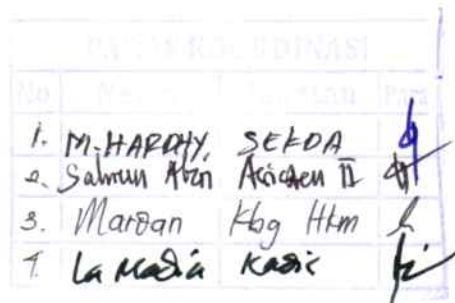 PARAF KOORDINASI
No Nama Jabatan Paraf
1. M. HARDHY, SEKDA
2. Salmun Abzn Asisten II
3. Marzan Kbg Hkm
4. La Madia Kadis